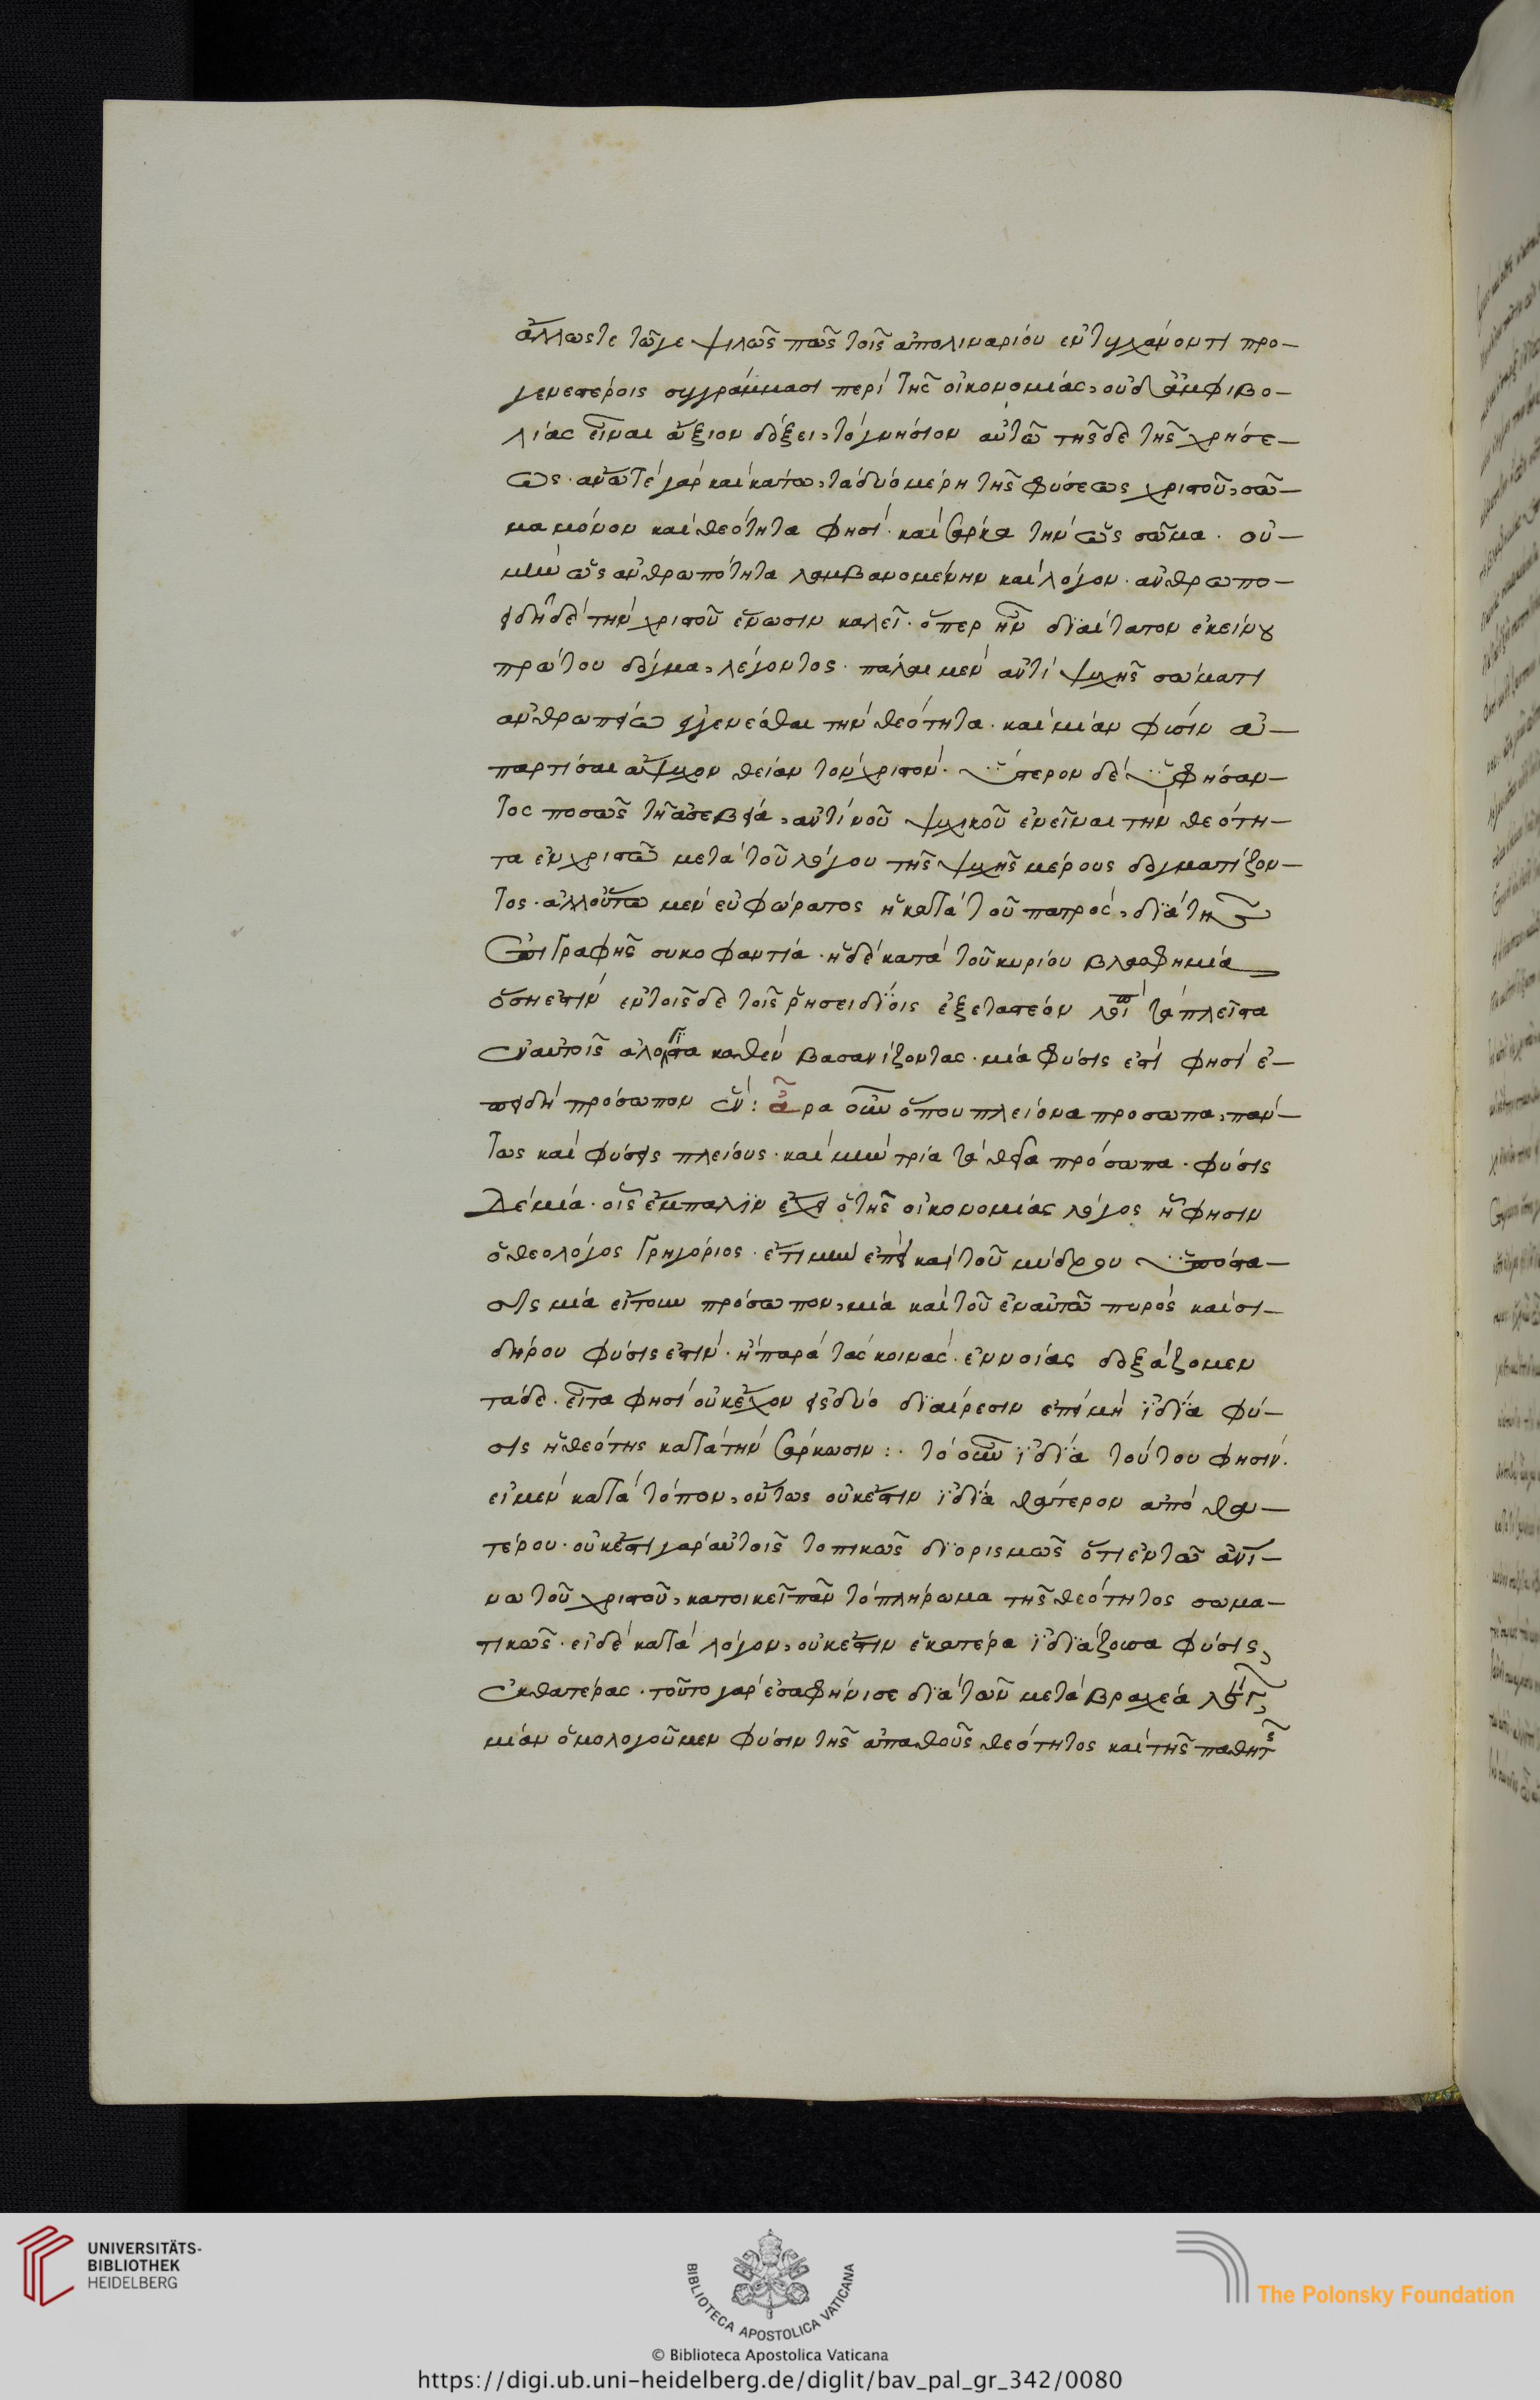 ἄλλωςτε τῶγε ψιλῶς πῶς τοῖς ἀπολιναρίου ἐντυχάνοντι προ-
γενεστέροις συγράμμασι περὶ τῆς οἰκονομίας, οὐδ ἀμφιβο-
λίας εἶναι ἄξιον δόξει, τὸ γνήσιον αὐτῶ τῆς δὲ τῆς χρήσε-
ως. ἄνω τὲ γὰρ καὶ κάτω, τὰ δύο μέρη τῆς φύσεως χριστοῦ, σῶ-
μα μόνον καὶ θεότητα φησί. καὶ σάρκα τὴν ὡς σῶμα. οὐ-
μὴν ὡς ἀνθρωπότητα λαμβανομένην καὶ λόγον. ἀνθρωπο-
ειδῆ δὲ τὴν χριστοῦ ἕνωσιν καλεῖ. ὅπερ ἦν διαίτατον ἐκείνου
πρώτου δόγμα, λέγοντος. πάλαι μὲν ἀντὶ ψυχῆς σώματι
ἀνθρωπείω ἐγγενέσθαι τὴν θεότητα. καὶ μίαν φύσιν ἀ-
παρτίσαι ἄψυχον θείαν τὸν χριστόν. ὕστερον δὲ ὑφήσαν-
τος ποσῶς τῆ ἀσεβεία, ἀντὶ νοῦ ψυχικοῦ ἐνεῖναι τὴν θεότη-
τα ἐν χριστῶ μετὰ τοῦ λόγου τῆς ψυχῆς μέρους δογματίζον-
τος. ἀλλ οὕτω μὲν εὐφώρατος ἡ κατὰ τοῦ πατρός, διὰ τῆς
ἐπιγραφῆς συκοφαντία. ἡ δὲ κατὰ τοῦ κυρίου βλασφημία
ὅση ἐστὶν ἐν τοῖς δὲ τοῖς ῥησειδίοις ἐξεταστέον τὰ πλεῖστα
ἐν αὐτοῖς καθὲν βασανίζοντας. μία φύσις ἐστὶ φησὶ ἐ-
πειδὴ πρόσωπον ἕν: ἆρα οὖν ὅπου πλείονα πρόσωπα, πάν-
τως καὶ φύσεις πλείους. καὶ μὴν τρία τὰ θεῖα πρόσωπα. φύσις
δὲ μία. οἷς ἔμπαλιν ἔχει ὁ τῆς οἰκονομίας λόγος ἧ φησιν
ὁ θεολόγος γρηγόριος. ἔτι μὴν ἐπεὶ καὶ τοῦ μύδρου ὑπόστα-
σις μία εἴτουν πρόσωπον, μία καὶ τοῦ ἐν αὐτῶ πυρὸς καὶ σι-
δήρου φύσις ἐστίν. ἢ παρὰ τὰς κοινὰς. ἐννοίας δοξάζομεν
τάδε. εἶτα φησὶ οὐκ ἔχον εἰς δύο διαίρεσιν ἐπεὶ μὴ ἰδία φύ-
σις ἡ θεότης κατὰ τὴν σάρκωσιν:. τὸ οὖν ἰδία τούτου φησίν.
εἰ μὲν κατὰ τόπον, οὕτως οὐκ ἔστιν ἰδία θάτερον ἀπὸ θα-
τέρου. οὐκ ἔστι γὰρ αὐτοῖς τοπικῶς διορισμῶς ὅτι ἐν τῶ ἀνῖ-
νω τοῦ χριστοῦ, κατοικεῖ πᾶν τὸ πλήρωμα τῆς θεότητος σωμα-
τικῶς. εἰ δὲ κατὰ λόγον, οὐκ ἔστιν ἑκατέρα ἰδιάζουσα φύσις,
ἐκθατέρας. τοῦτο γὰρ ἐσαφήνισε διὰ τῶν μετὰ βραχέα
μίαν ὁμολογοῦμεν φύσιν τῆς ἀπαθοῦς θεότητος καὶ τῆς παθητῆς
UNIVERSITÄTS-
BIBLIOTHEK
HEIDELBERG
BIBLIOTECA APOSTOLICA VATICANA
The Polonsky Foundation
© Biblioteca Apostolica Vaticana
https://digi.ub.uni-heidelberg.de/diglit/bav_pal_gr_342/0080